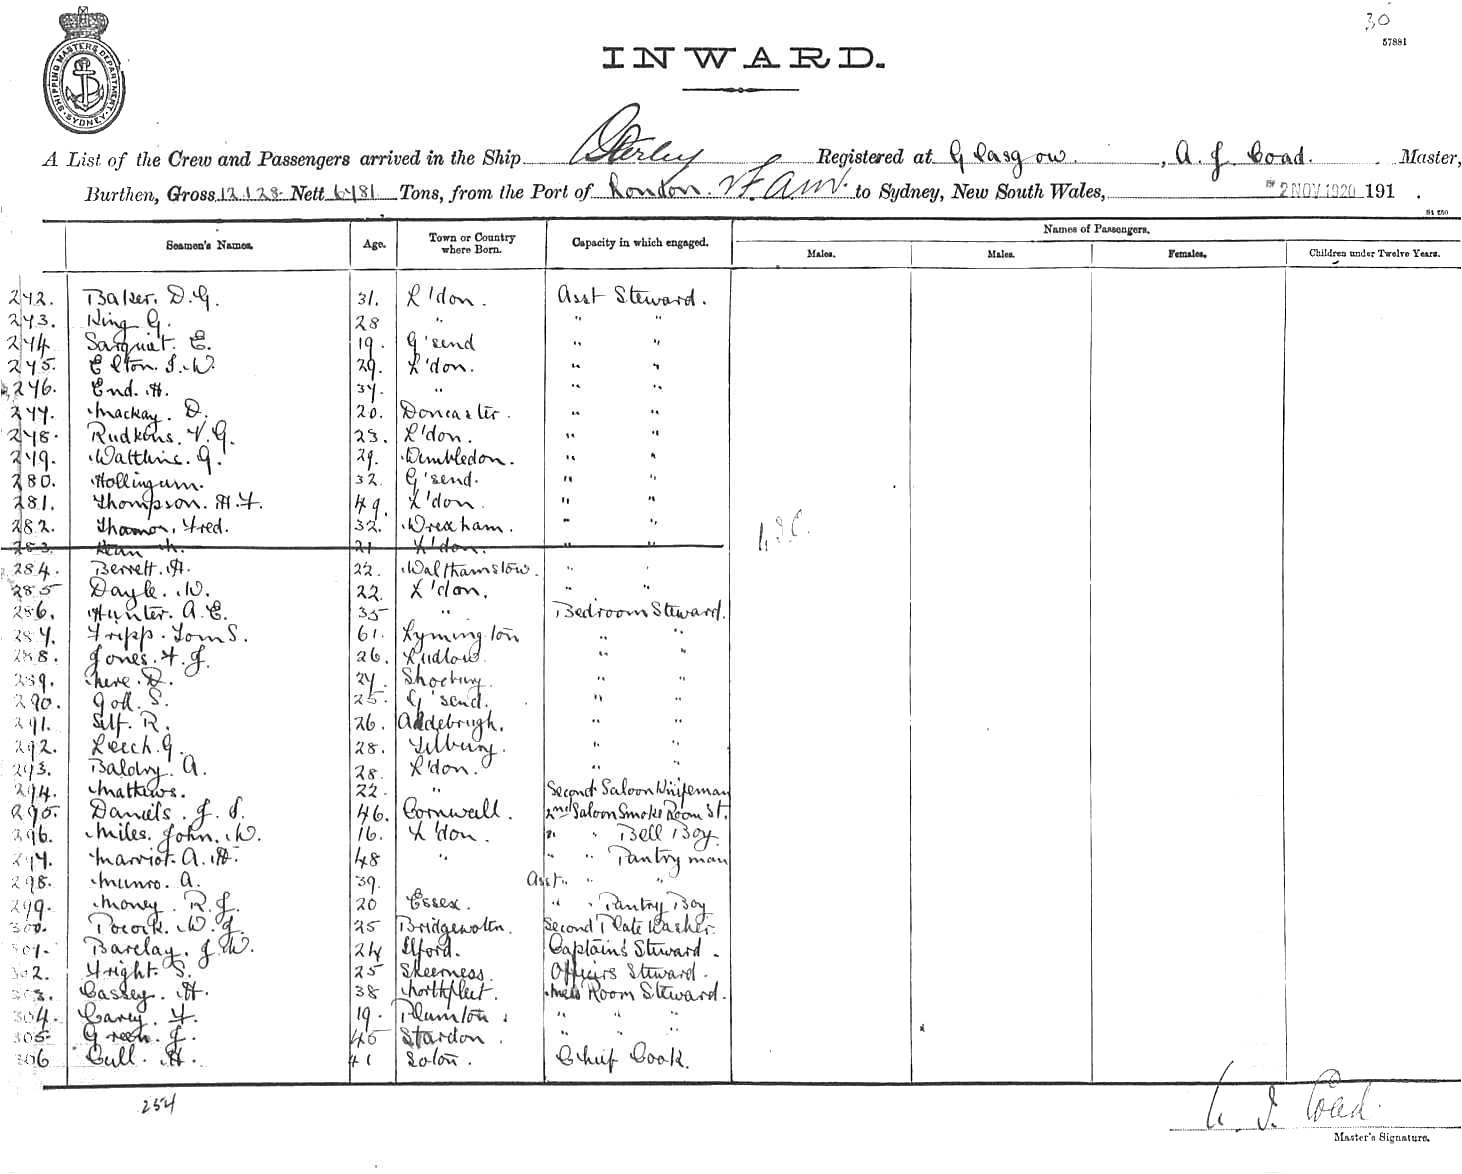 30
57881
SHIPPING MASTERS DEPARTMENT SYDNEY
INWARD.
A List of the Crew and Passengers arrived in the Ship Orterley Registered at Glasgow, A. J. Coad. Master,
Burthen, Gross 12128 Nett 6481 Tons, from the Port of London. to Sydney, New South Wales, 2 NOV 1920 191 .
Seamen's Names. Age. Town or Country where Born. Capacity in which engaged. Names of Passengers.
Males. Males. Females. Children under Twelve Years.
242. Baker. D.G. 31. L'don. Asst Steward.
243. King G. 28 " " "
274. E. 19. G'send " "
275. Elton. J.W. 29. L'don. " "
276. End. H. 34. " " "
277. Mackay. D. 20. Doncaster. " "
278. Rudkins. V.G. 23. L'don. " "
279. G. 29. Wimbledon. " "
280. Hollingum. 32. G'send. " "
281. Thompson. H.F. 49. L'don. " "
282. Fred. 32. Wrexham. " "
283. 21 L'don. " "
284. Berrett. H. 22. Walthamstow. " "
285 Dayle. W. 22. L'don. " "
286. Hunter. A.E. 35 " Bedroom Steward.
287. Fripp. Tom S. 61. Lymington " "
288. Jones. F.J. 26. Ludlow. " "
289. D. 24. Shoebury. " "
290. S. 25. G'send. " "
291. Self. R. 26. Aldebrugh. " "
292. Leech. G. 28. Tilbury. " "
293. Baldry. A. 28. L'don. " "
294. Mathews. 22. " Second Saloon Knifeman
295. Daniels. J.S. 46. Cornwall. 2nd Saloon Smoke Room St.
296. Miles. John. W. 16. L'don. " " Bell Boy.
297. Marriot. A.H. 48 " " " Pantry man
298. Munro. A. 39. Asst. " "
299. Money. R.J. 20 Essex. " " Pantry Boy
300. Pocock. W.J. 25 Bridgewater. Second Plate Washer.
301. Barclay. J.W. 24 Ilford. Captains Steward.
302. Fright. S. 25 Sheerness. Officers Steward.
303. Cassey. H. 38 Northfleet. Mess Room Steward.
304. Carey. F. 19. Plumton. " " "
305. Green. J. 45 Stardon. " " "
306 Cull. H. 41 Soton. Chief Cook.
254
A. J. Coad.
Master's Signature.